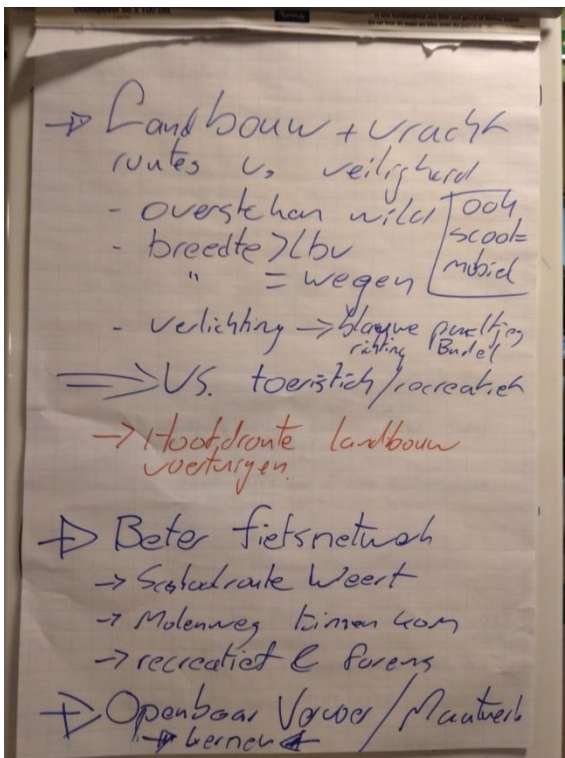 → Landbouw + vracht
routes vs veiligheid
- overstekan wild
ook
scoot=
mobiel
- breedte > lbv
" = wegen
- verlichting → blauwe puntjes
richting Budel
⇒ VS. toeristich/recreatief
→ Hoofdroute landbouw
voertuigen
→ Beter fietsnetwerk
→ Schoolroute Weert
→ Molenweg binnen kom
→ recreatief & forens
→ Openbaar Vervoer / Maatwerk
→ kernen